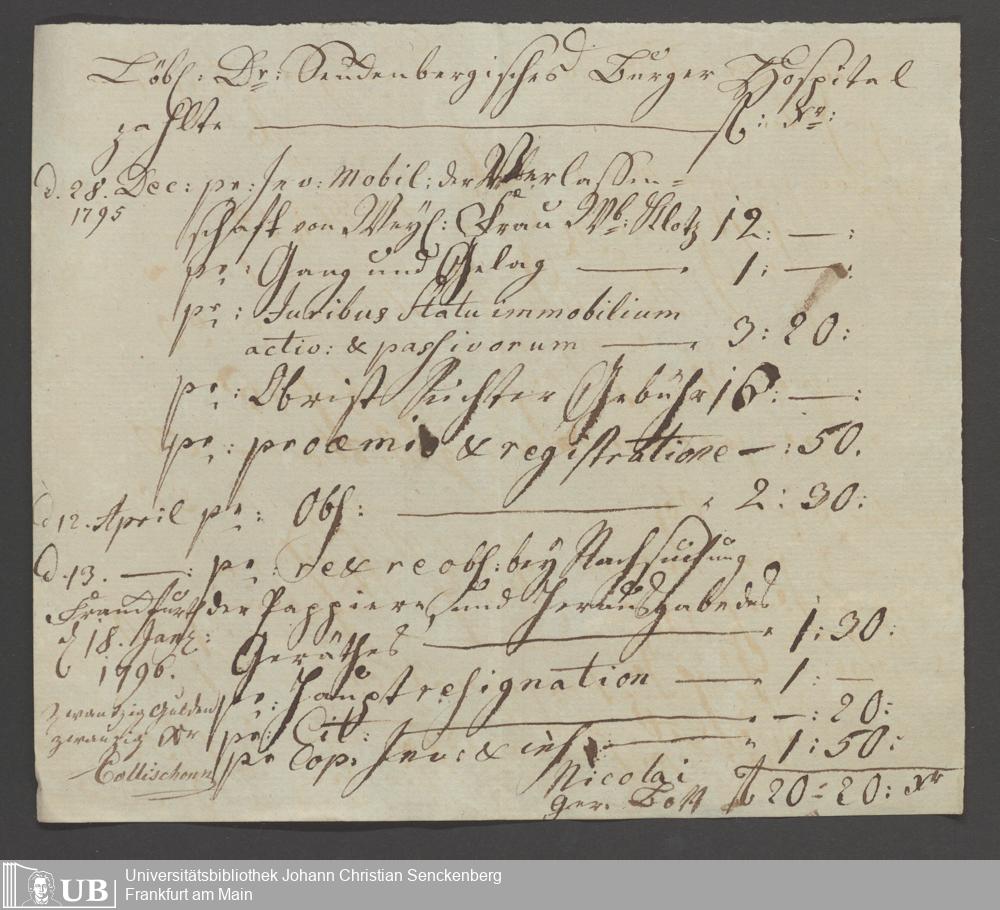 Löbl: Dr: Senckenbergisches Bürger Hospital
zahlte f: Xr:
d. 28. Dec: pr: Inv: Mobil: der Verlassen=
1795
schafft von Weyl: Frau Klotz 12: —:
pr: Gang und Gelag — 1: —:
pr: Juribus Statu immobilium
activ: & passivorum — 3: 20:
pr: Obrist Richter Gebühr 16: —:
pr: proemio & registratione — : 50.
d 12. April pr: Obs: — 2: 30:
d. 13. —: pr: re & reobs: bey Nachsuchung
der Pappiere, und Herausgabe des
Geräthes — 1: 30:
Franckfurt
d 18. Jan:
1796.
pr: Haupt resignation — 1: —
pr: Cit: — : 20:
pr Cop: Inv: & — 1: 50:
zwantzig Gulden
zwanzig Xr
Collischonn
Nicolai
Ger. Bott f 20 = 20: Xr
UB
Universitätsbibliothek Johann Christian Senckenberg
Frankfurt am Main